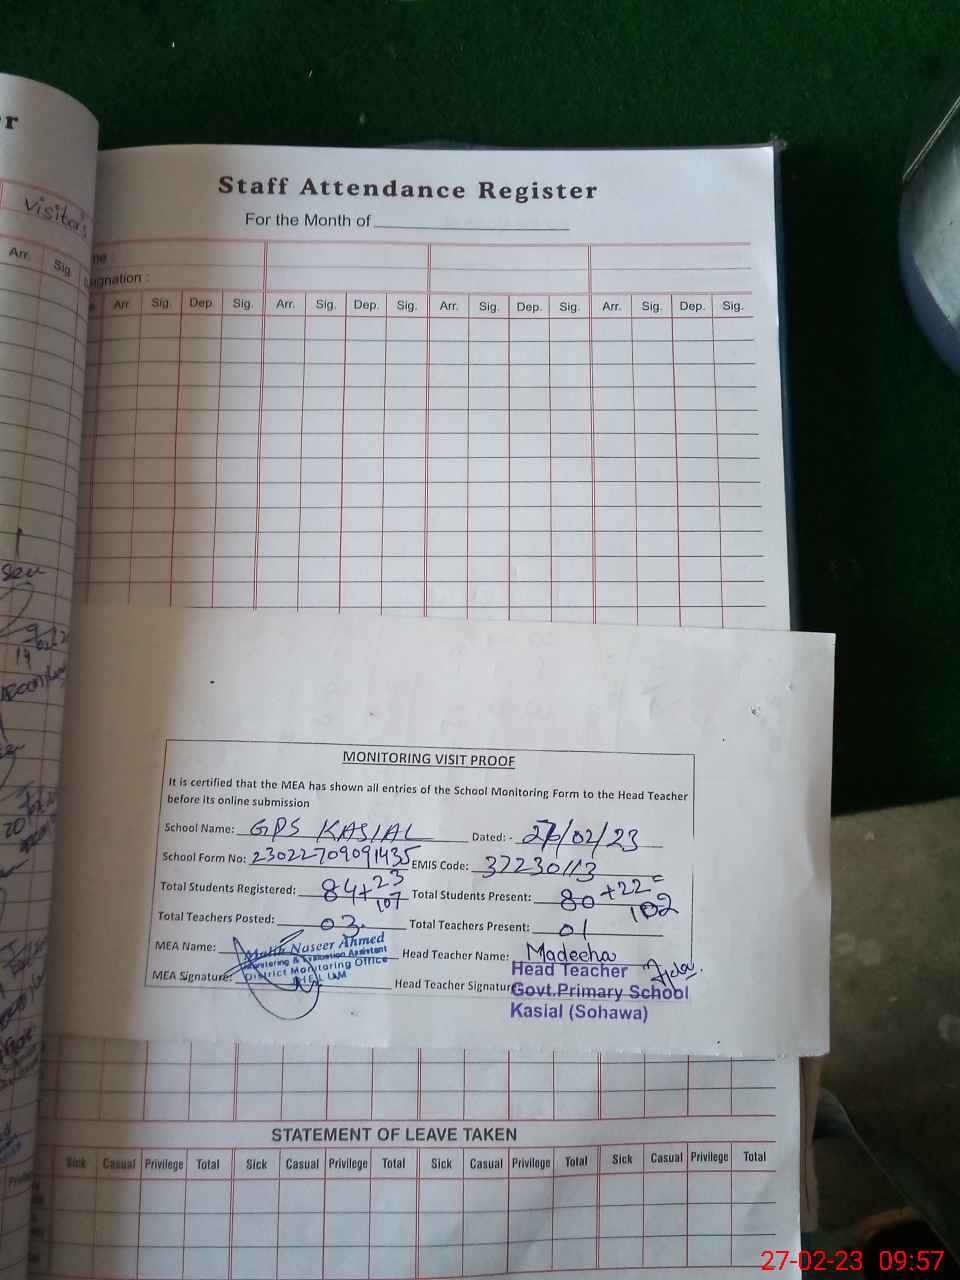 er
Visitors
Arr. Sig.
Staff Attendance Register
For the Month of
ne :
signation :
Arr. Sig. Dep. Sig. Arr. Sig. Dep. Sig. Arr. Sig. Dep. Sig. Arr. Sig. Dep. Sig.
MONITORING VISIT PROOF
It is certified that the MEA has shown all entries of the School Monitoring Form to the Head Teacher
before its online submission
School Name: GPS KASIAL Dated: - 27/02/23
School Form No: 23022709091435 EMIS Code: 37230113
Total Students Registered: 84+23 107 Total Students Present: 80+22= 102
Total Teachers Posted: 03 Total Teachers Present: 01
MEA Name: Malik Nuseer Ahmed Head Teacher Name: Madeeha
Monitoring & Evaluation Assistant
District Monitoring Office
JHELUM
MEA Signature: Head Teacher Signature
Head Teacher
Govt.Primary School
Kasial (Sohawa)
STATEMENT OF LEAVE TAKEN
Sick Casual Privilege Total Sick Casual Privilege Total Sick Casual Privilege Total Sick Casual Privilege Total
27-02-23 09:57